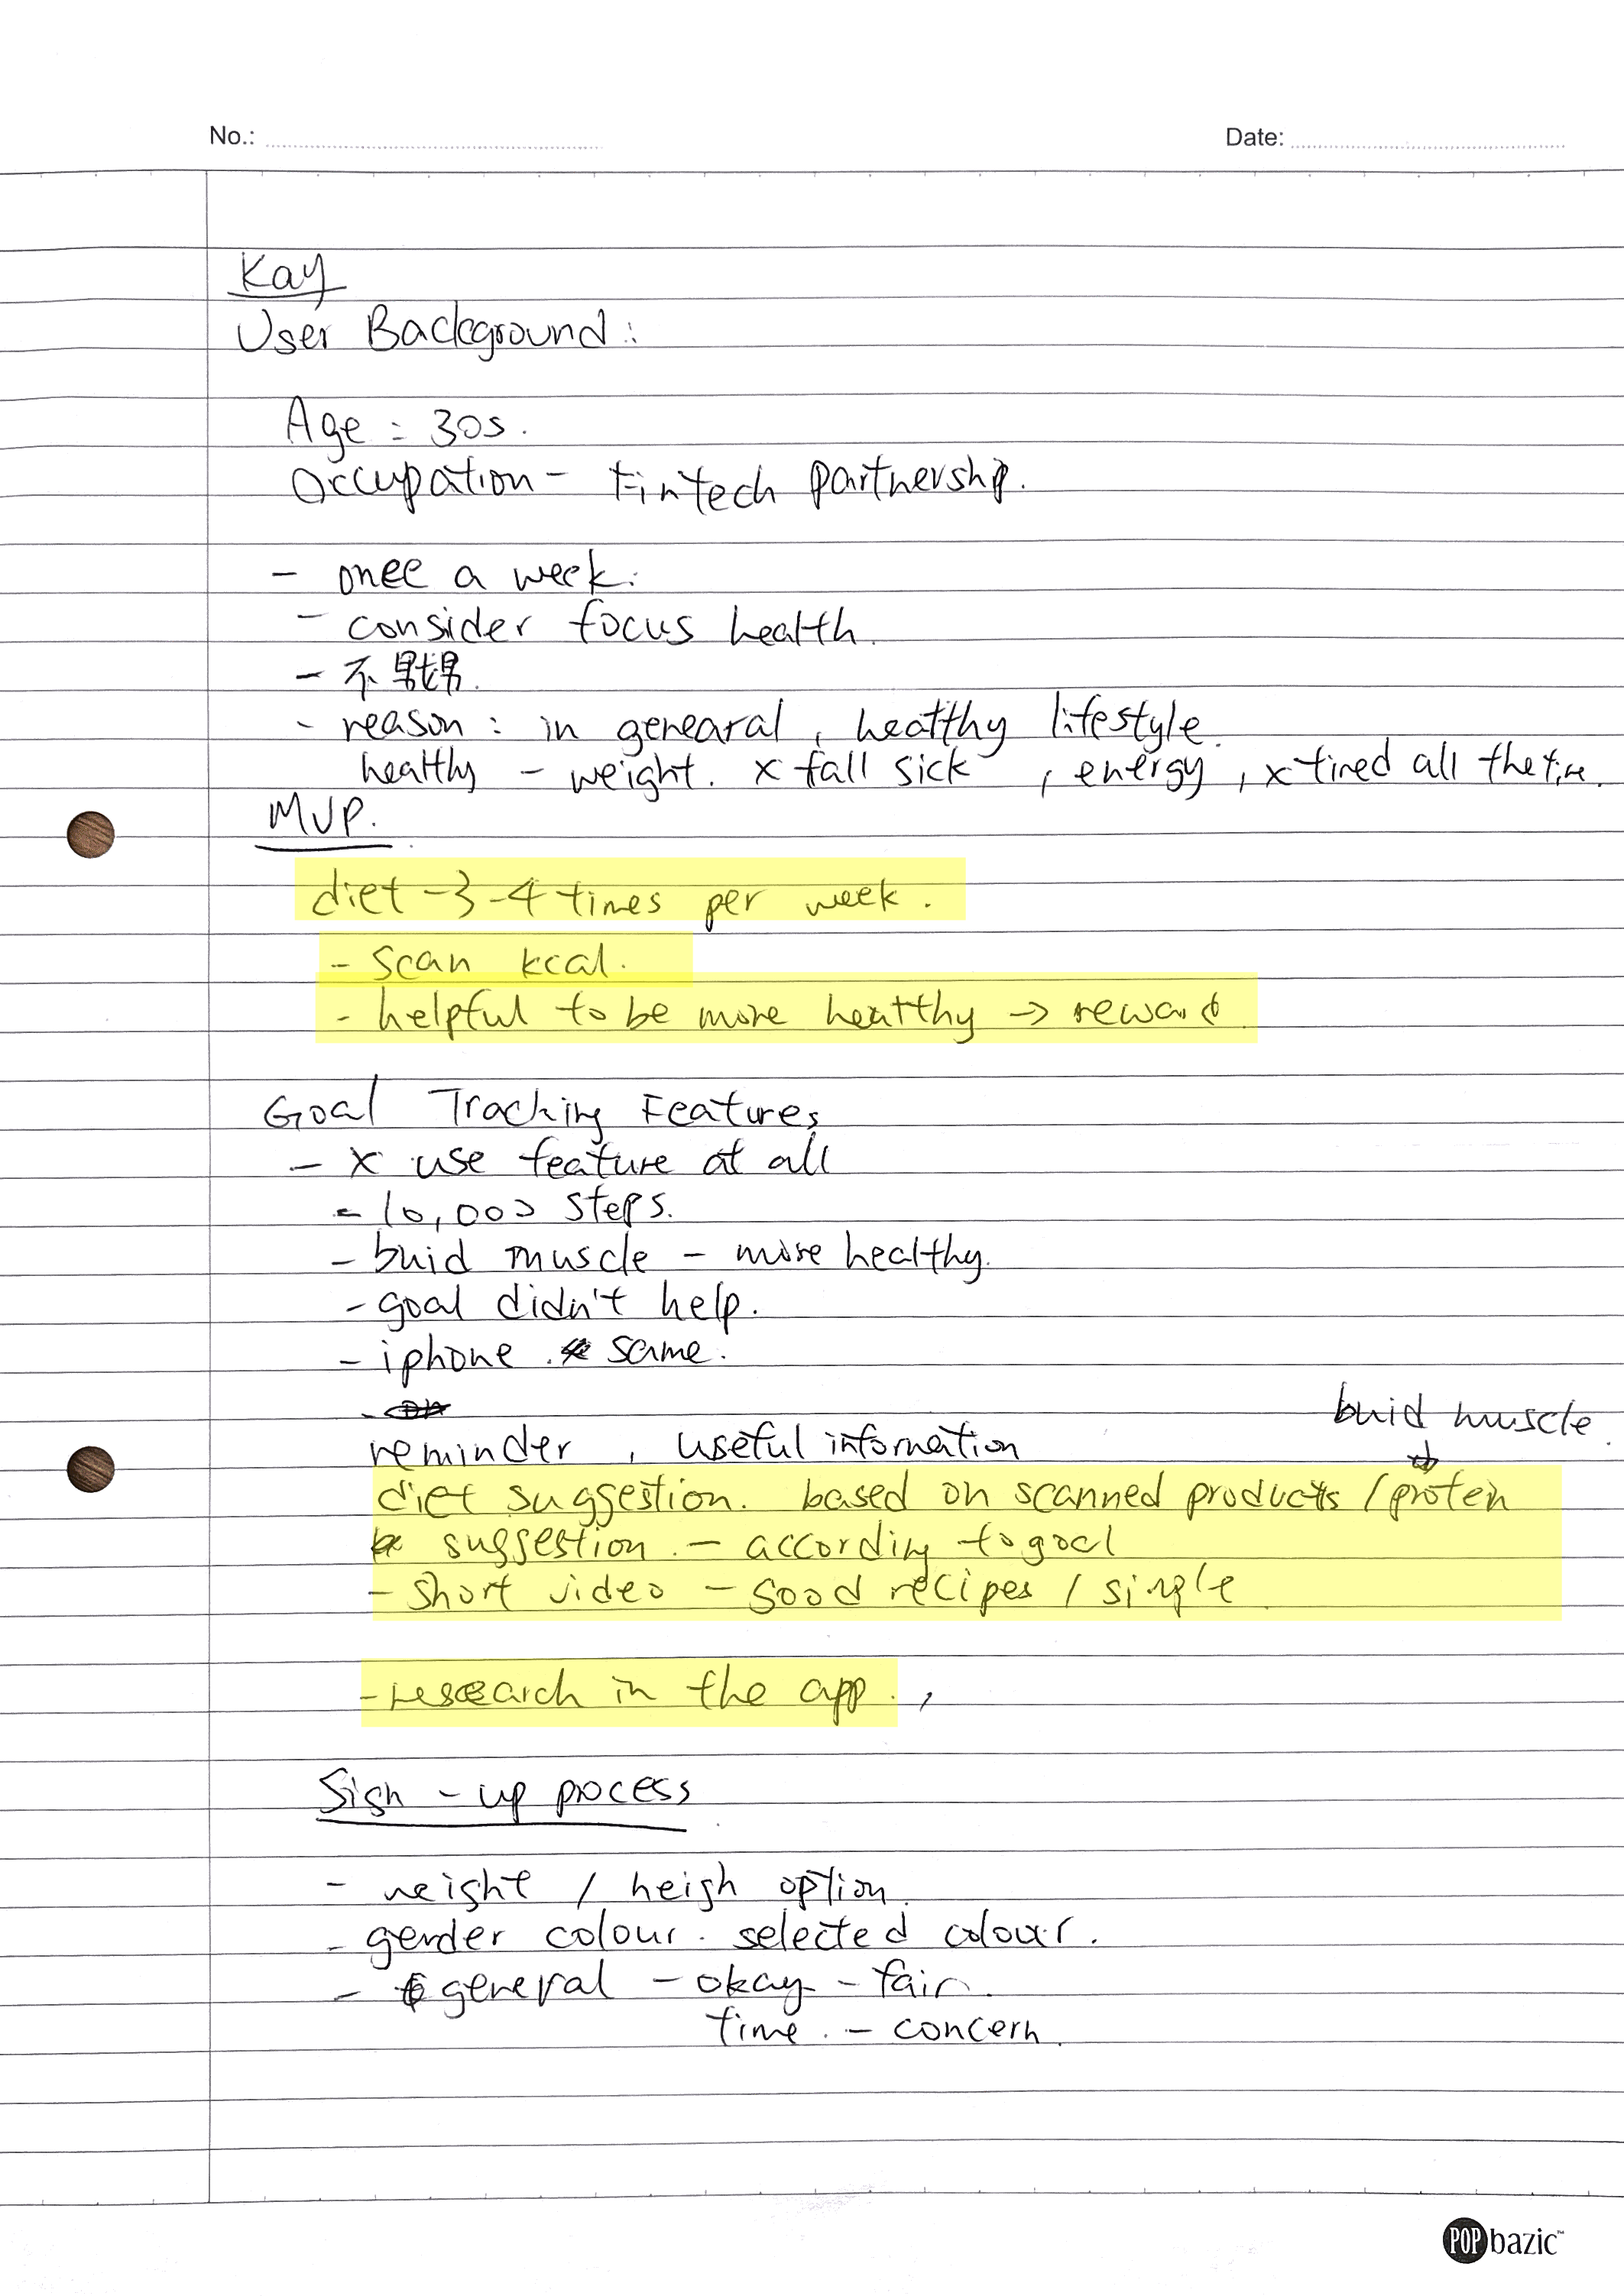 No.:
Date:
Kay
User Background:
Age: 30s.
Occupation - Fintech partnership.
- once a week.
- consider focus health.
- 不
- reason: in genearal, healthy lifestyle.
healthy - weight. x fall sick, energy, x tired all the time.
MVP.
diet -3-4 times per week.
- scan kcal.
- helpful to be more healthy → reward
Goal Tracking Features
- x use feature at all
- 10,000 steps.
- buid muscle - more healthy.
- goal didn't help.
- iphone. same.
buid muscle.
reminder, useful information
diet suggestion. based on scanned products / protein
suggestion. - according to goal
- short video - good recipes / simple
- research in the app.,
Sign - up process
- weight / heigh option.
- gender colour. selected colour.
- general - okay - fair.
time. - concern.
POP bazic™